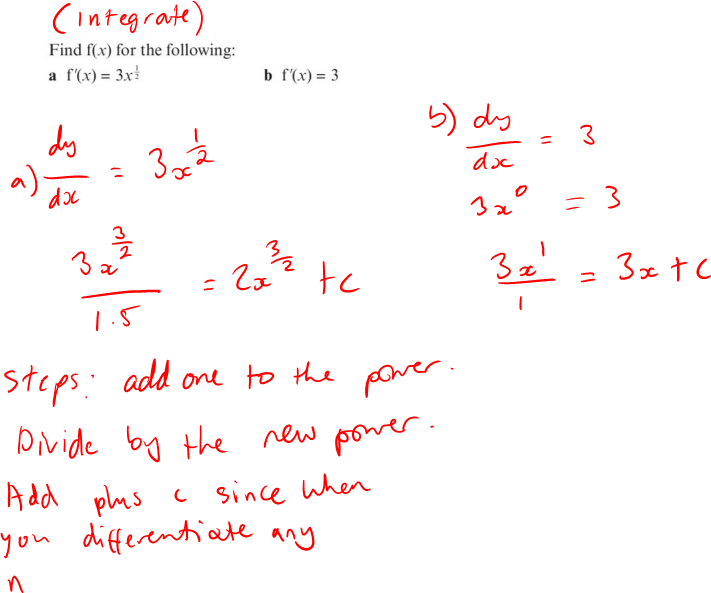 (Integrate)
Find f(x) for the following:
a f'(x) = 3x^½
b f'(x) = 3
a) dy/dx = 3x^(1/2)
3x^(3/2)/1.5 = 2x^(3/2) + c
b) dy/dx = 3
3x^0 = 3
3x^1/1 = 3x + c
Steps: add one to the power.
Divide by the new power.
Add plus c since when
you differentiate any
n